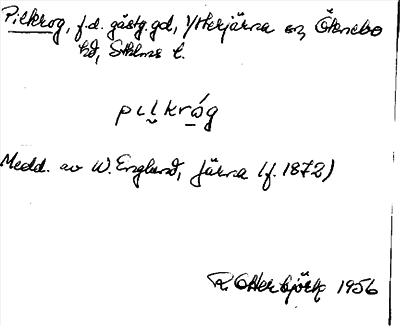 Pilkrog, f.d. gästg.gd, Ytterjärna sn, Öknebo
hd, Sthlms l.
pılkrǿg
Medd. av W. Englund, Järna (f. 1872)
R. Otterbjörk 1956